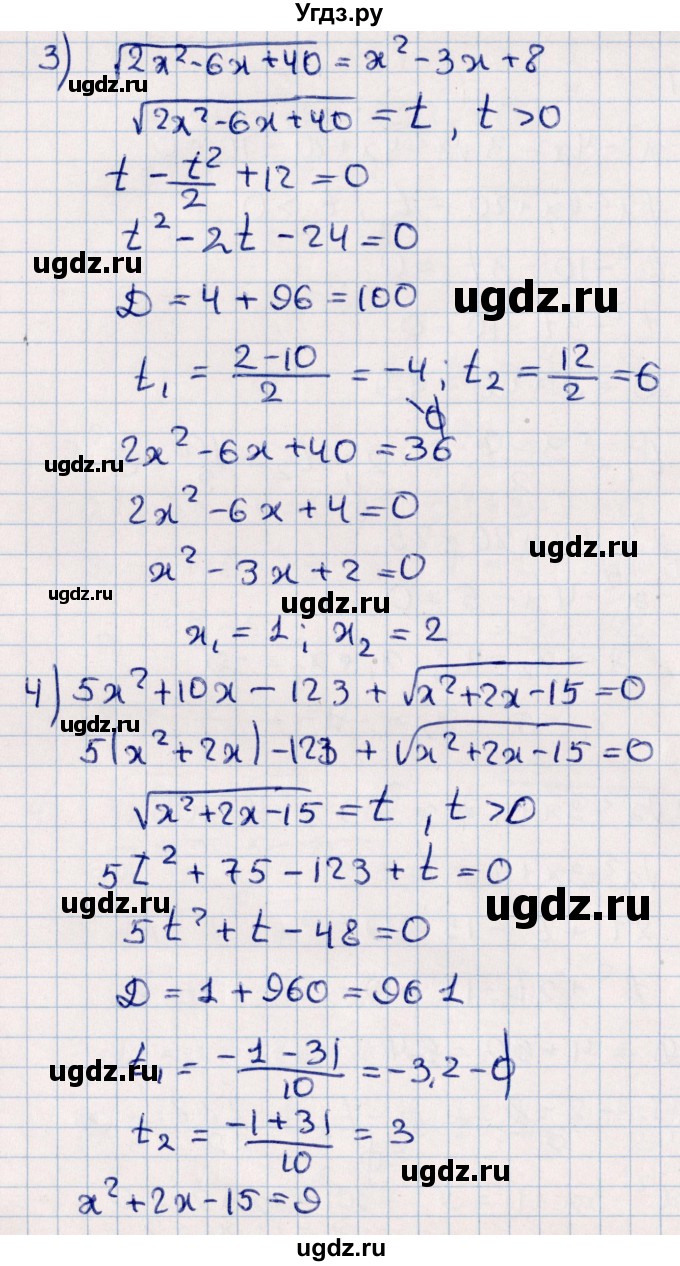 Угдз.ру
3) √(2x²-6x+40) = x²-3x+8
√(2x²-6x+40) = t, t>0
t - t²/2 + 12 = 0
t² - 2t - 24 = 0
ugdz.ru
Д = 4 + 96 = 100
ugdz.ru
t₁ = (2-10)/2 = -4; t₂ = 12/2 = 6
∅
2x² - 6x + 40 = 36
ugdz.ru
2x² - 6x + 4 = 0
ugdz.ru
x² - 3x + 2 = 0
ugdz.ru
ugdz.ru
x₁ = 1; x₂ = 2
4) 5x² + 10x - 123 + √(x²+2x-15) = 0
5(x²+2x) - 123 + √(x²+2x-15) = 0
√(x²+2x-15) = t, t>0
5t² + 75 - 123 + t = 0
ugdz.ru
ugdz.ru
5t² + t - 48 = 0
Д = 1 + 960 = 961
ugdz.ru
t₁ = (-1-31)/10 = -3,2 - ∅
t₂ = (-1+31)/10 = 3
ugdz.ru
x² + 2x - 15 = 9
ugdz.ru